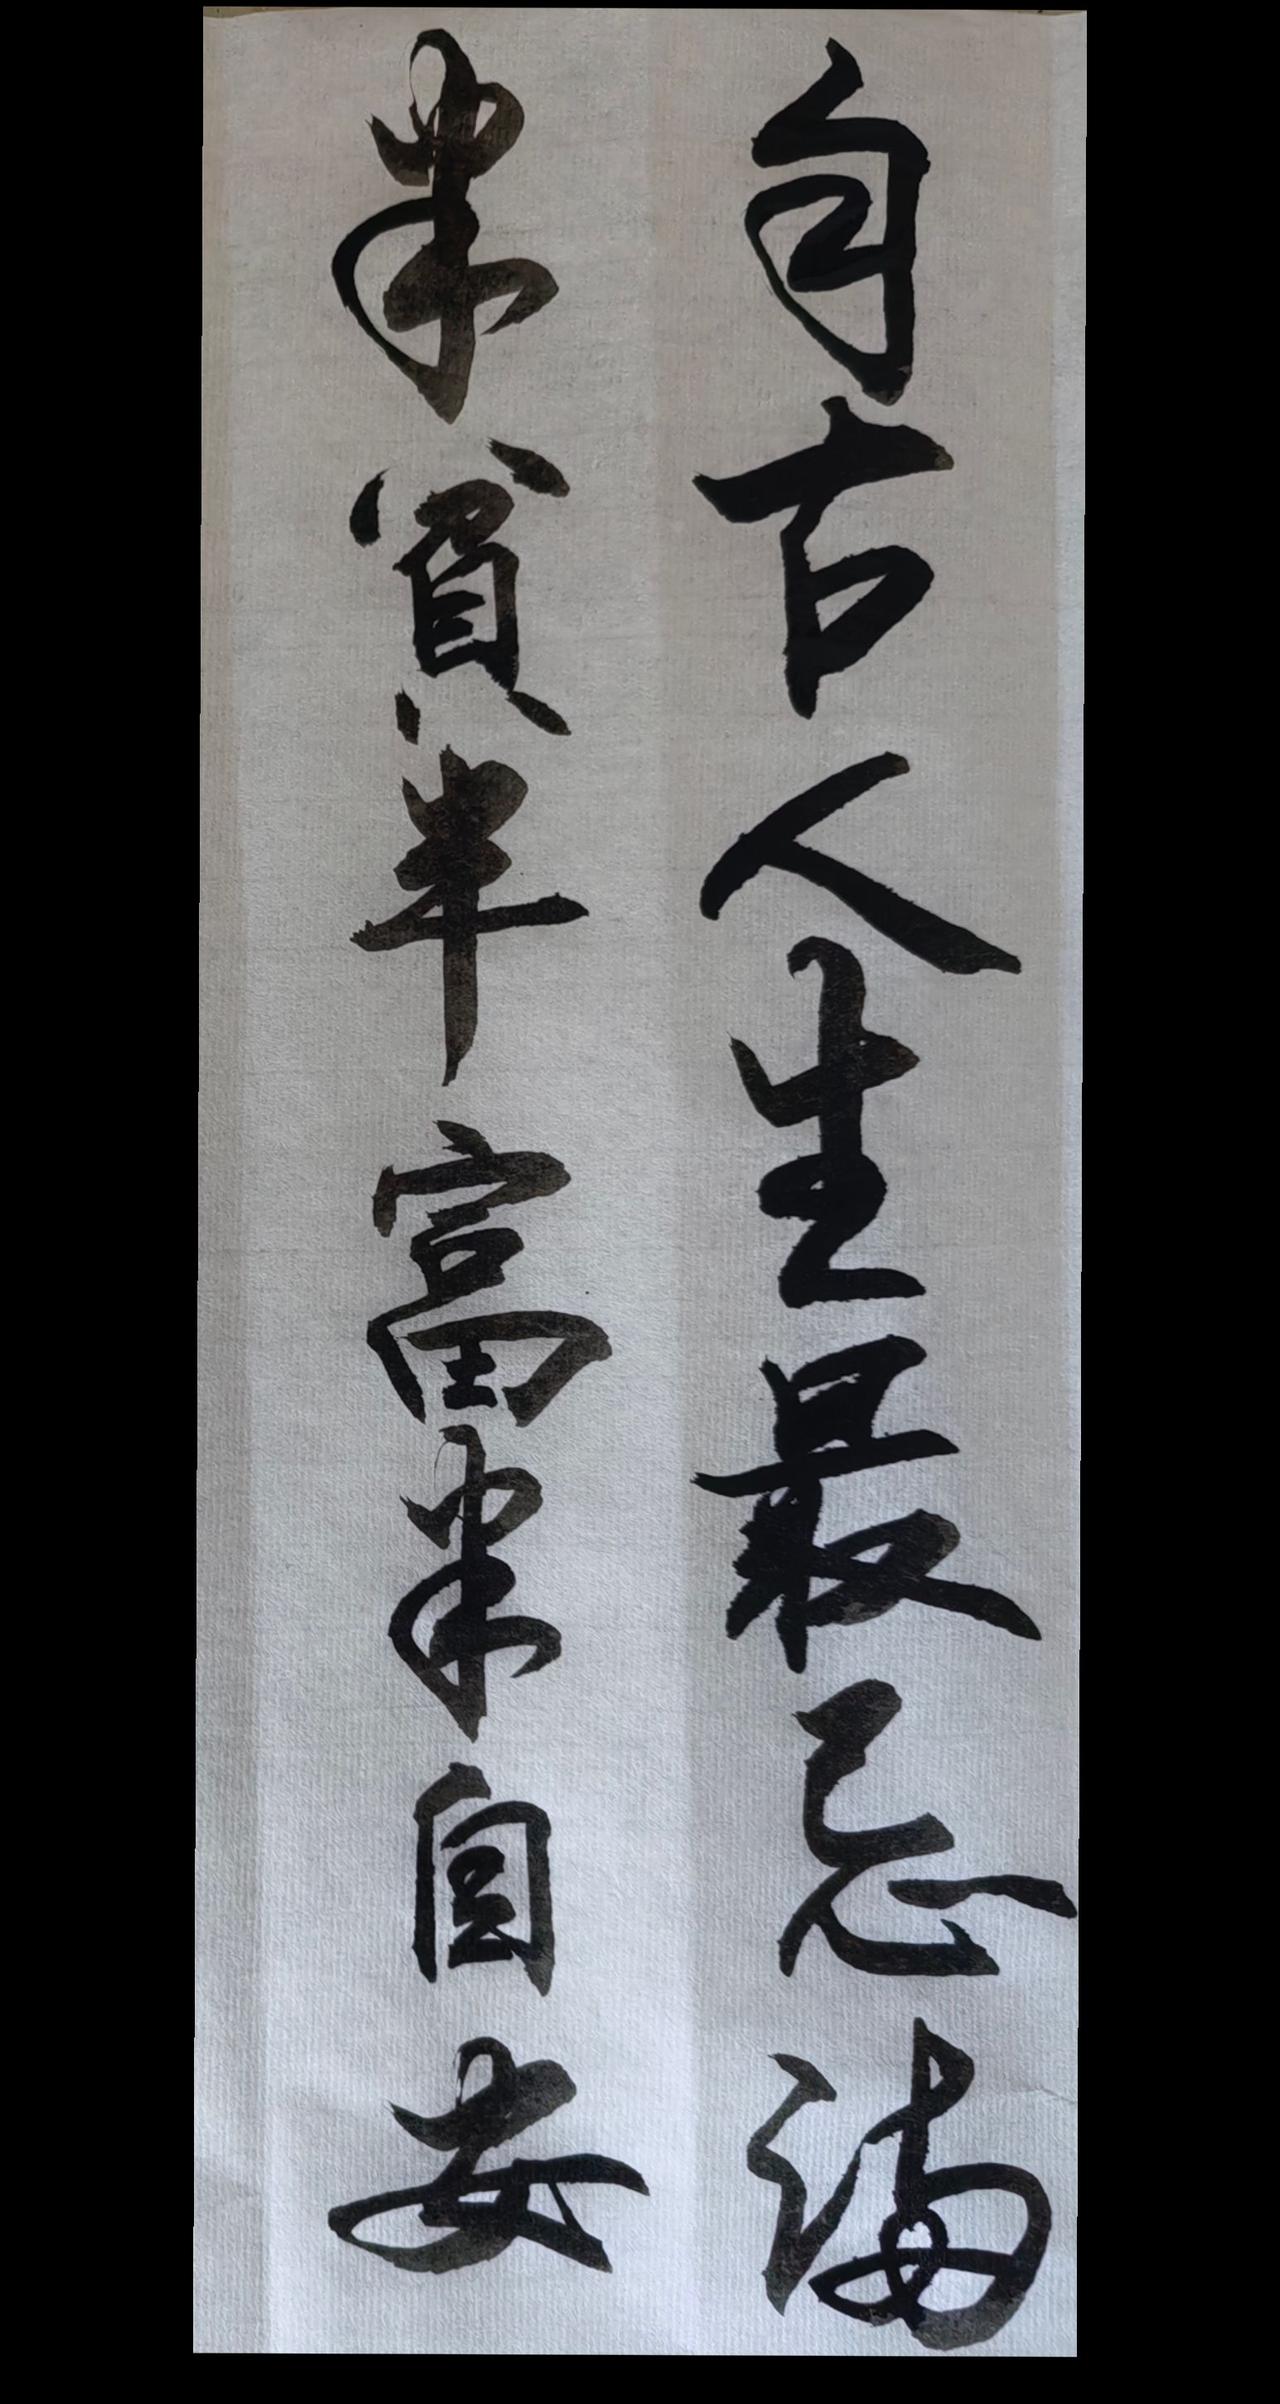 自古人生最忌满
半贫半富半自安